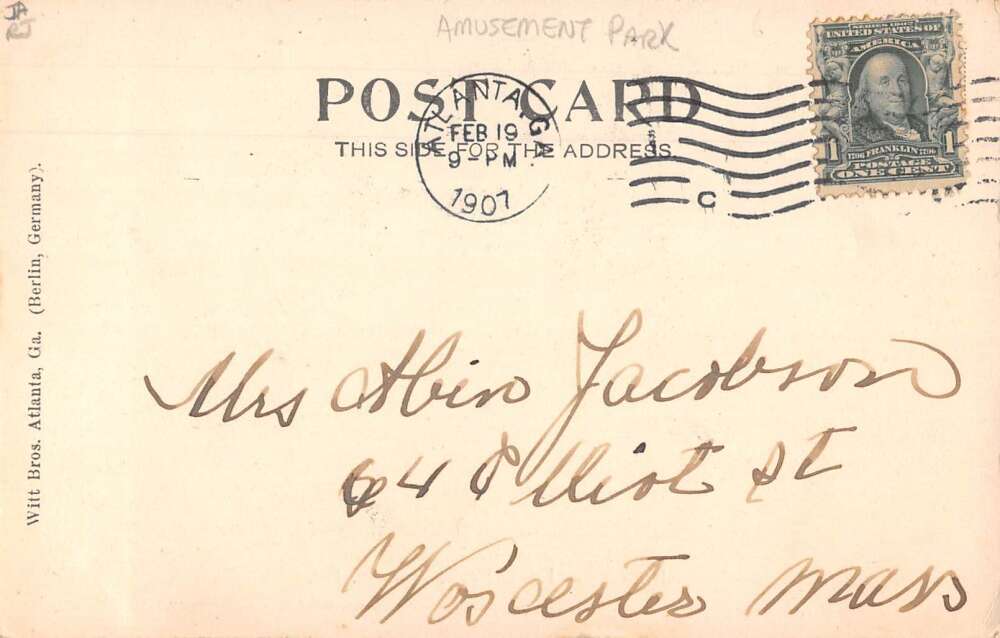 JA
RJ
AMUSEMENT PARK
SERIES 1902
UNITED STATES OF
AMERICA
1 FRANKLIN 1
1706 1790
POSTAGE
ONE CENT
POST CARD
THIS SIDE FOR THE ADDRESS.
ATLANTA, GA.
FEB 19
9-PM
1907
C
Witt Bros. Atlanta, Ga. (Berlin, Germany).
Mrs Albin Jacobson
64 Elliot St
Worcester Mass